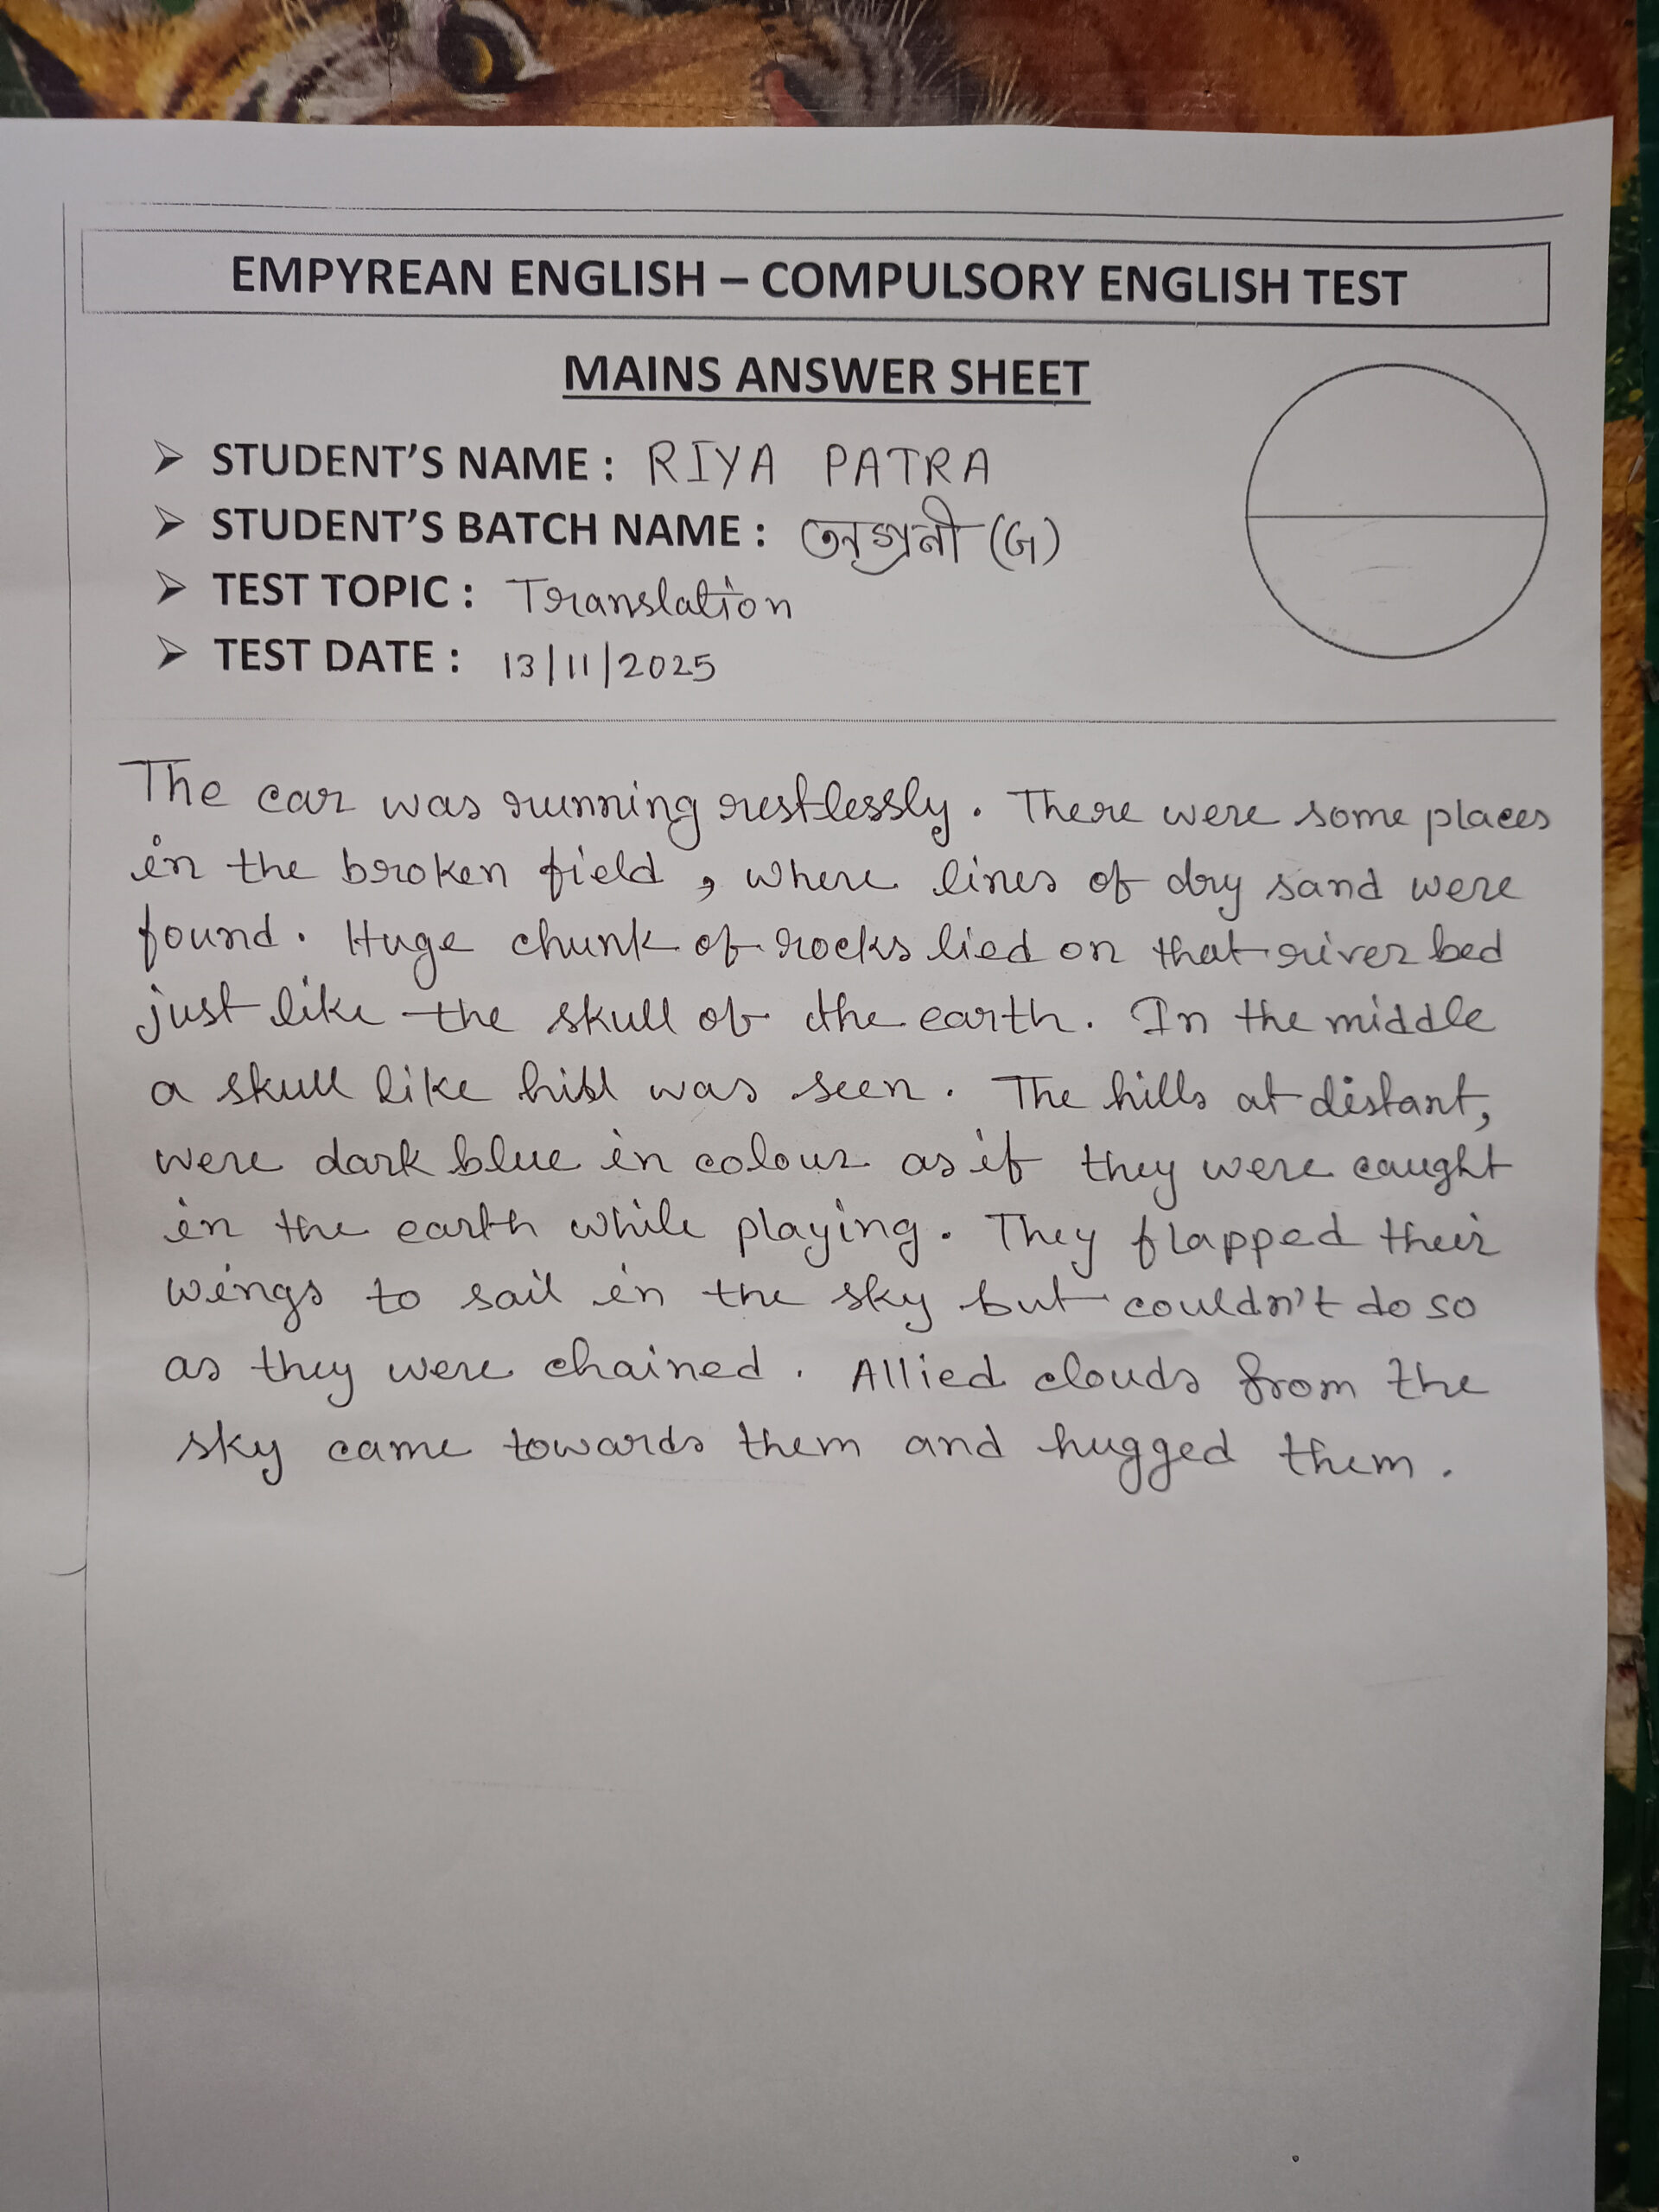 EMPYREAN ENGLISH – COMPULSORY ENGLISH TEST
MAINS ANSWER SHEET
➢ STUDENT'S NAME : RIYA PATRA
➢ STUDENT'S BATCH NAME : অগ্রনী (G)
➢ TEST TOPIC : Translation
➢ TEST DATE : 13/11/2025
The car was running restlessly. There were some places
in the broken field, where lines of dry sand were
found. Huge chunk of rocks lied on that river bed
just like the skull of the earth. In the middle
a skull like hill was seen. The hills at distant,
were dark blue in colour as if they were caught
in the earth while playing. They flapped their
wings to sail in the sky but couldn't do so
as they were chained. Allied clouds from the
sky came towards them and hugged them.